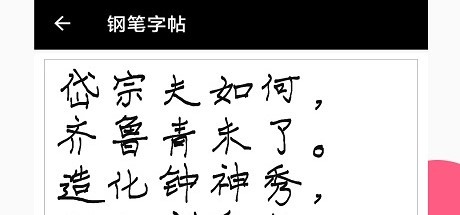 钢笔字帖
岱宗夫如何，
齐鲁青未了。
造化钟神秀，